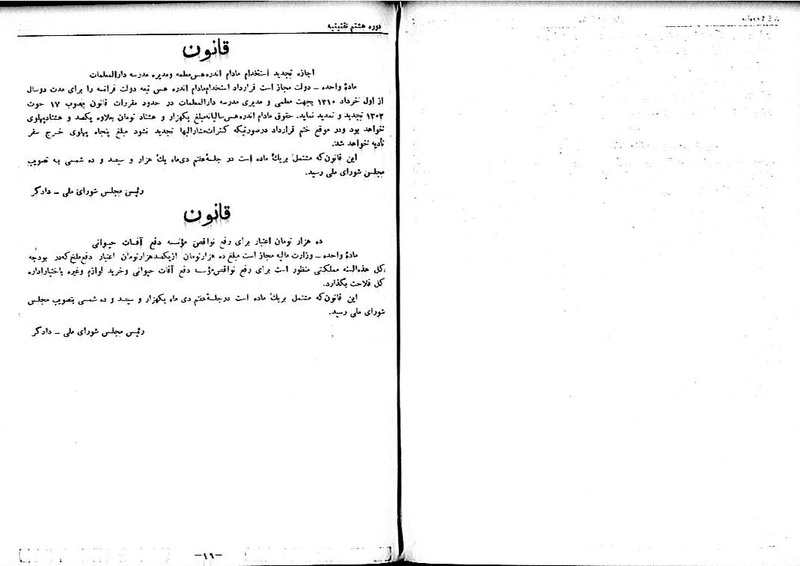 دوره هشتم تقنینیه
قانون
اجازه تجدید استخدام مادام اندره هس معلمه ومدیره مدرسه دارالمعلمات
مادهٔ واحده ــ دولت مجاز است قرارداد استخدام مادام اندره هس تبعه دولت فرانسه را برای مدت دوسال
از اول خرداد ۱۳۱۰ بجهت معلمی و مدیری مدرسه دارالمعلمات در حدود مقررات قانون مصوب ۱۷ حوت
۱۳۰۳ تجدید و تمدید نماید. حقوق مادام اندره هس سالیانه مبلغ یکهزار و هشتاد تومان بعلاوه یکصد و هشتاد پهلوی
خواهد بود ودر موقع ختم قرارداد درصورتیکه کنترات مشارالیها تجدید نشود مبلغ پنجاه پهلوی خرج سفر
تأدیه خواهد شد.
این قانون که مشتمل بریک ماده است در جلسهٔ هفتم دی ماه یک هزار و سیصد و ده شمسی به تصویب
مجلس شورای ملی رسید.
رئیس مجلس شورای ملی ــ دادگر
قانون
ده هزار تومان اعتبار برای رفع نواقص مؤسسه دفع آفات حیوانی
مادهٔ واحده ــ وزارت مالیه مجاز است مبلغ ده هزارتومان ازیکصدهزارتومان اعتبار دفع ملخ که در بودجه
کل هذه السنه مملکتی منظور است برای رفع نواقص مؤسسه دفع آفات حیوانی وخرید لوازم وغیره باختیار اداره
کل فلاحت بگذارد.
این قانون که مشتمل بریک ماده است درجلسهٔ هفتم دی ماه یکهزار و سیصد و ده شمسی بتصویب مجلس
شورای ملی رسید.
رئیس مجلس شورای ملی ــ دادگر
ــ۱۶ــ